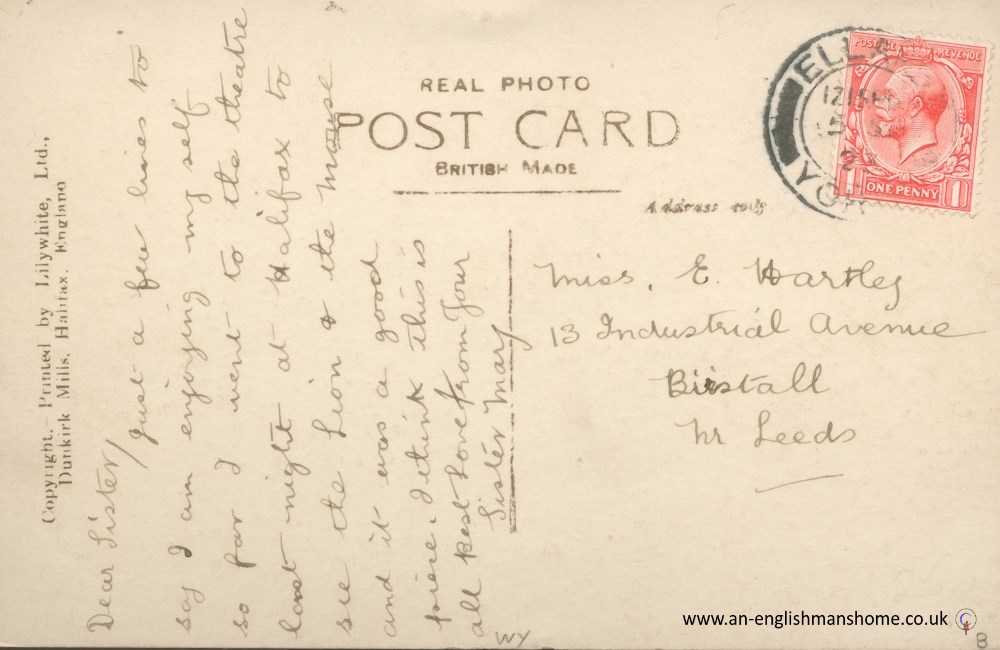 REAL PHOTO
POST CARD
BRITISH MADE
Address only
Copyright.- Printed by Lilywhite, Ltd.,
Dunkirk Mills, Halifax, England
Dear Sister/
Just a few lines to
say I am enjoying my self
so far I went to the theatre
last night at Halifax to
see the Lion & the mouse
and it was a good
piece I think this is
all best Love from Your
Sister Mary
ELLA
12 15
2
YO
POSTAGE REVENUE
1 ONE PENNY 1
Miss. E. Hartley
13 Industrial Avenue
Birstall
nr Leeds
WY
www.an-englishmanshome.co.uk
B